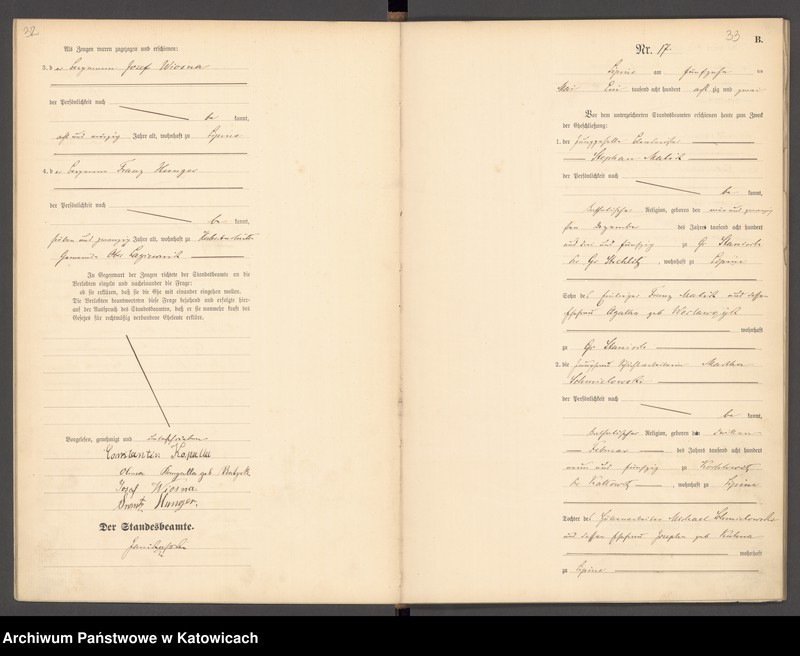 32
Als Zeugen waren zugezogen und erschienen:
3. der Bergmann Josef Wiosna
der Persönlichkeit nach
be kannt,
acht und Jahre alt, wohnhaft zu Lipine
4. der Bergmann Franz Hunger
der Persönlichkeit nach
be kannt,
sieben und zwanzig Jahre alt, wohnhaft zu
Gemeinde Ober Lagiewnik
In Gegenwart der Zeugen richtete der Standesbeamte an die
Verlobten einzeln und nacheinander die Frage:
ob sie erklären, daß sie die Ehe mit einander eingehen wollen.
Die Verlobten beantworteten diese Frage bejahend und erfolgte hier-
auf der Ausspruch des Standesbeamten, daß er sie nunmehr kraft des
Gesetzes für rechtmäßig verbundene Eheleute erkläre.
Vorgelesen, genehmigt und unterschrieben
Constantin
geb
Josef Wiosna
Frantz Hunger.
Der Standesbeamte.
33
B.
Nr. 17.
Lipine am fünfzehn ten
Mai Ein tausend acht hundert acht zig und zwei
Vor dem unterzeichneten Standesbeamten erschienen heute zum Zweck
der Eheschließung:
1. der Junggeselle
Stephan Matik
der Persönlichkeit nach
be kannt,
katholischer Religion, geboren den vier und zwanzig
sten Dezember des Jahres tausend acht hundert
und drei und fünfzig zu Gr Stanisch
Kr Gr Strehlitz, wohnhaft zu Lipine
Sohn des Franz Matik und dessen
Ehefrau Agatha geb
wohnhaft
zu Gr Stanisch
2. die Martha
Schmielowski
der Persönlichkeit nach
be kannt,
katholischer Religion, geboren den dritten
Februar des Jahres tausend acht hundert
neun und fünfzig zu
Kr Kattowitz, wohnhaft zu Lipine
Tochter des Hüttenarbeiter Michael Schmielowski
und dessen Ehefrau Josepha geb
wohnhaft
zu Lipine
Archiwum Państwowe w Katowicach